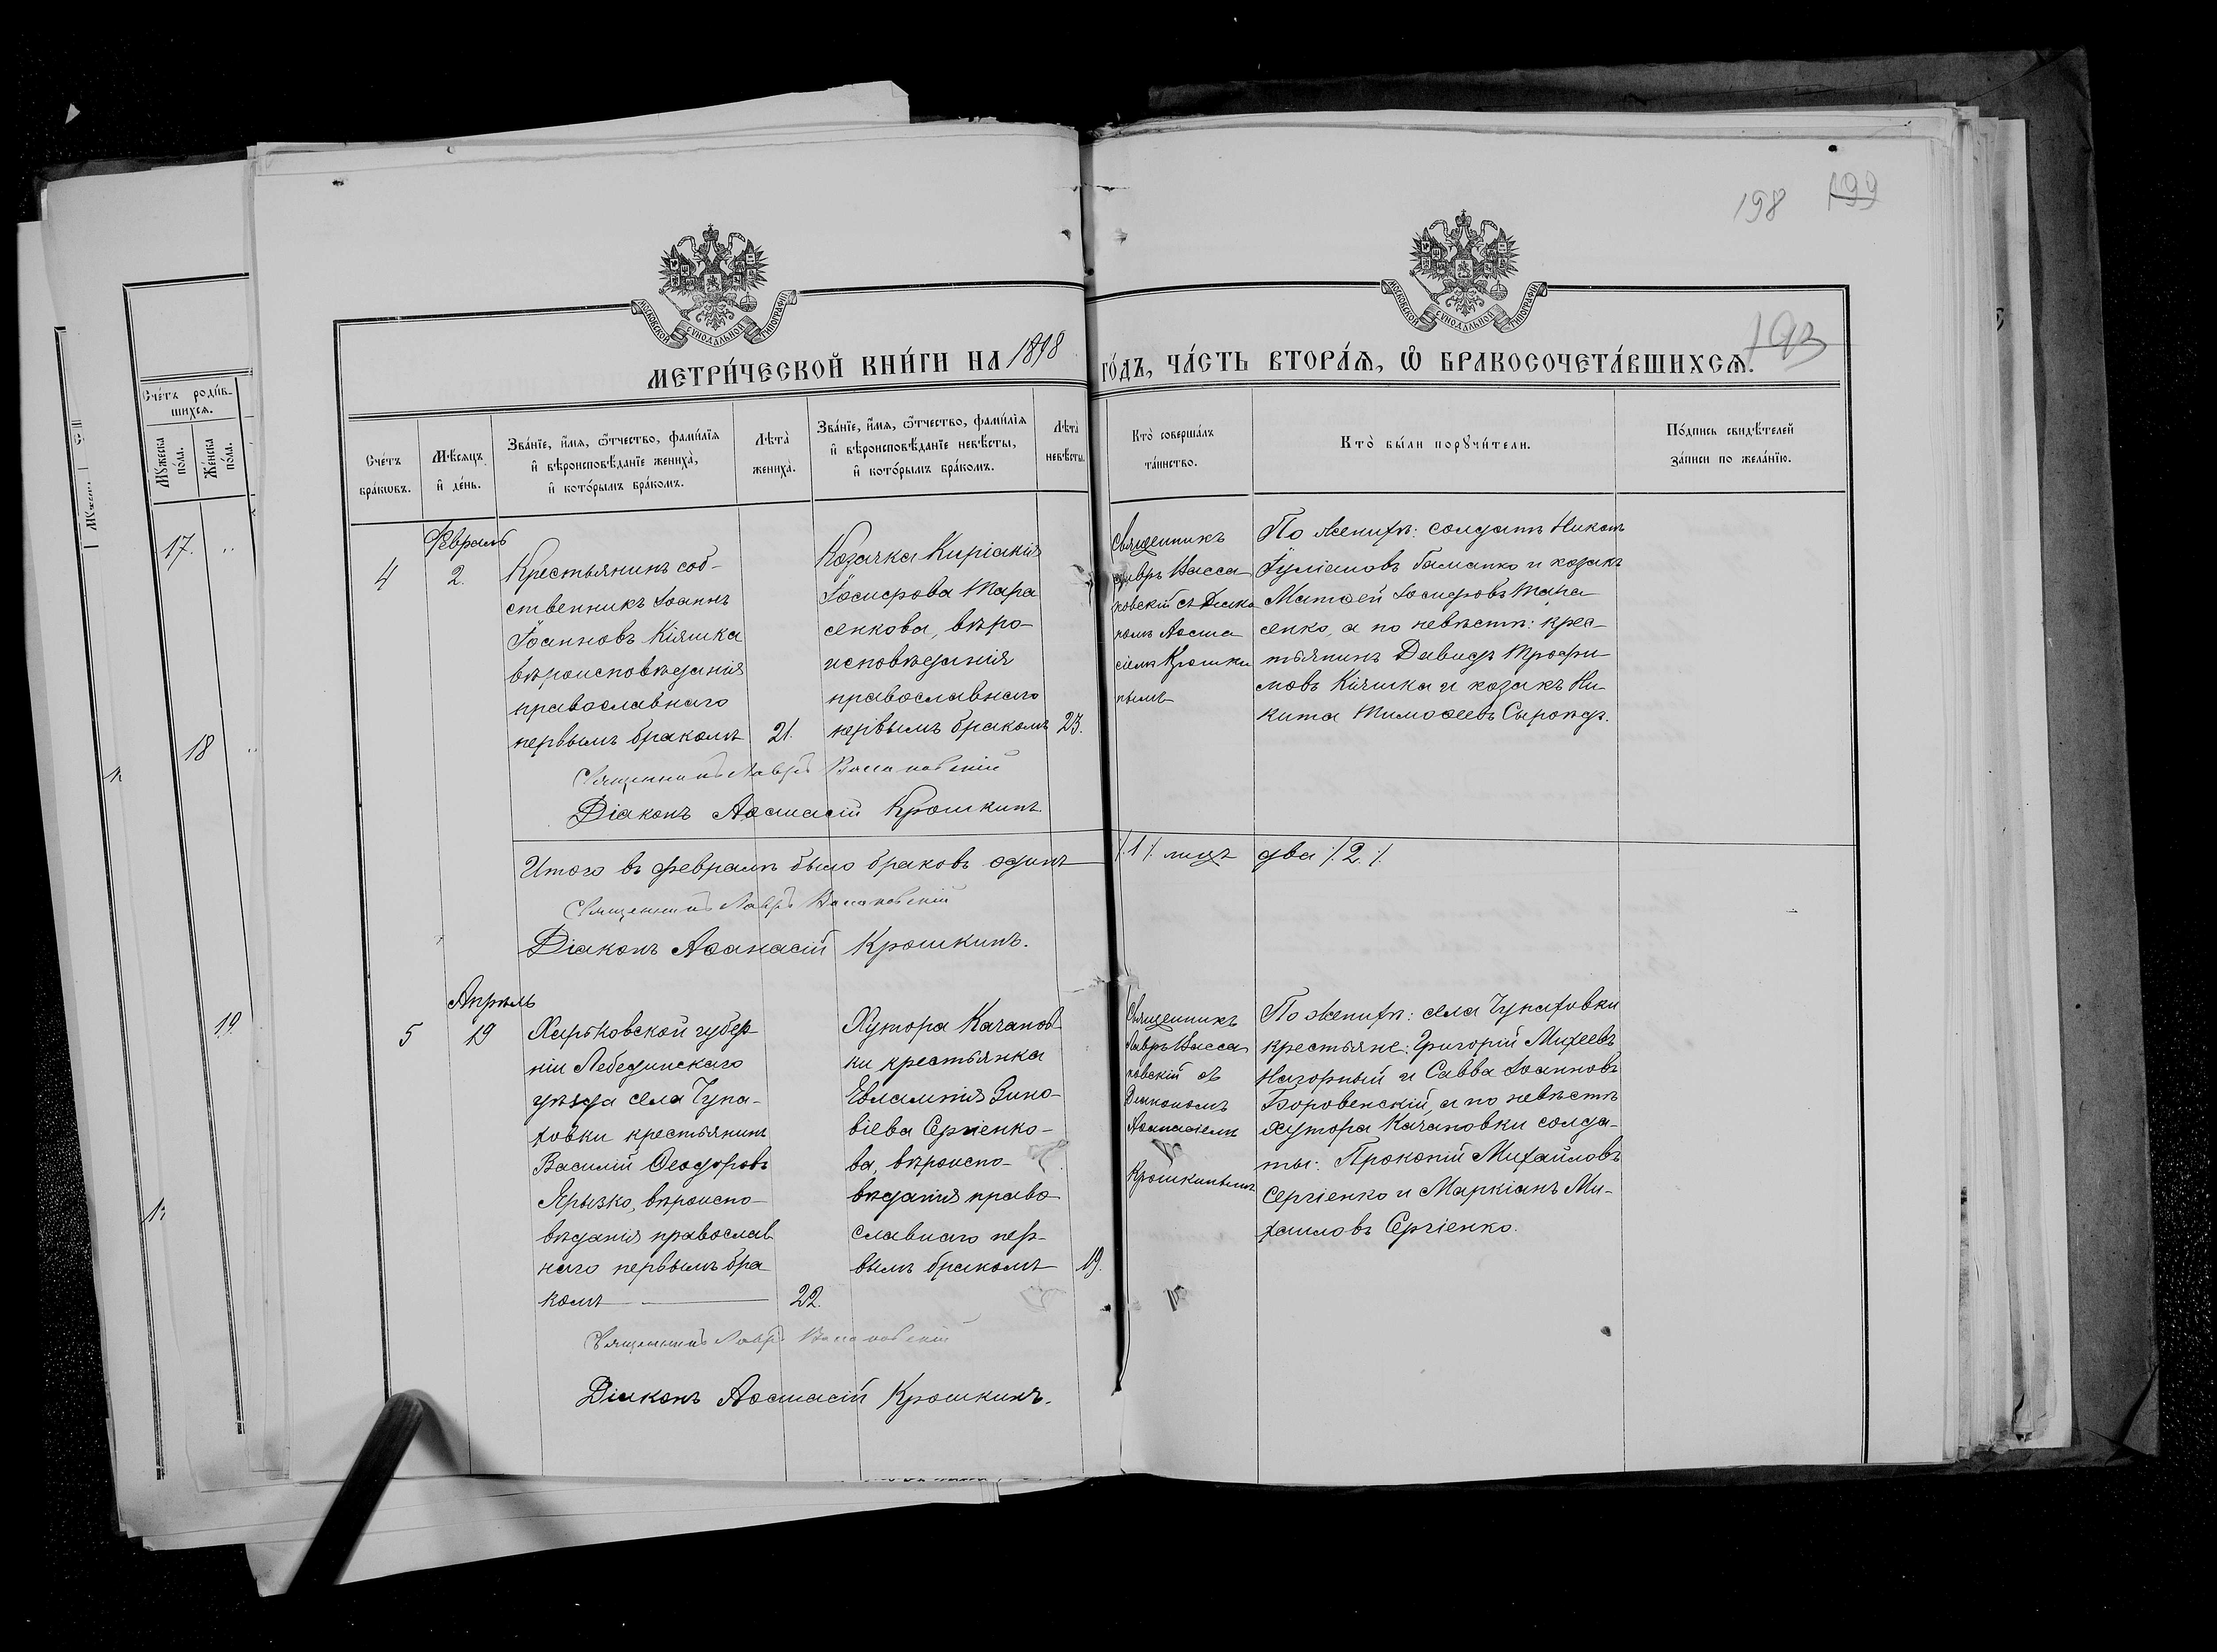 198 199
193
МОСКОВСКОЙ СУНОДАЛЬНОЙ ТИПОГРАФІИ
МОСКОВСКОЙ СУНОДАЛЬНОЙ ТИПОГРАФІИ
МЕТРИ́ЧЕСКОЙ КНИ́ГИ НА 1898 ГО́ДЪ, ЧА́СТЬ ВТОРА́Я, Ѿ БРАКОСОЧЕТА́ВШИХСЯ.
Сче́тъ
бра́кѡвъ.
Мѣ́сяцъ
и҆ де́нь.
Зва́нїе, и҆́мя, ѻ҆́тчество, фами́лїя
и҆ вѣроисповѣ́данїе жениха̀,
и҆ кото́рымъ бра́комъ.
Лѣта̀
жениха̀.
Зва́нїе, и҆́мя, ѻ҆́тчество, фами́лїя
и҆ вѣроисповѣ́данїе невѣ́сты,
и҆ кото́рымъ бра́комъ.
Лѣта̀
невѣ́сты.
Кто̀ соверша́лъ
та́инство.
Кто̀ бы́ли порꙋчи́тели.
По́дпись свидѣ́телей
за́писи по жела́нїю.
Сче́тъ роди́в-
шихся.
Мꙋ́жеска
по́ла.
Же́нска
по́ла.
17.
18
19
4
Февраль
2.
Крестьянинъ соб-
ственникъ Іоаннъ
Іоанновъ Кіяшка
вѣроисповѣданія
православнаго
первымъ бракомъ
21.
Козачка Киріакія
Іосифова Тара
сенкова, вѣро-
исповѣданія
православнаго
первымъ бракомъ
23.
Священникъ
Лавръ Васса
новскій съ Діако
номъ Аѳана
сіемъ Крошки
нымъ
По женихѣ: солдатъ
Іуліановъ Гаманко и козакъ
Матѳей Іосифовъ Тара
сенко, а по невѣстѣ: крес-
тьянинъ Давидъ Трофи
мовъ Кіяшка и козакъ Ни-
кита Тимоѳеевъ
Священникъ Лавръ Вассановскій
Діаконъ Аѳанасій Крошкинъ.
Итого въ февралѣ было браковъ одинъ /.1./ лицъ два /.2./.
Священникъ Лавръ Вассановскій
Діаконъ Аѳанасій Крошкинъ.
5
Апрѣль
19
Харьковской губер-
ніи Лебединскаго
уѣзда села Чупа-
ховки крестьянинъ
Василій Ѳеодоровъ
Ярызко, вѣроиспо-
вѣданія православ
наго первымъ бра
комъ
22.
Хутора Качанов-
ки крестьянка
Евлампія Зино-
віева Сергіенко-
ва, вѣроиспо-
вѣданія право-
славнаго пер-
вымъ бракомъ
19.
Священникъ
Лавръ Васса
новскій съ
Діакономъ
Аѳанасіемъ
Крошкинымъ
По женихѣ: села Чупаховки
крестьяне: Григорій Михеевъ
Нагорный и Савва Іоанновъ
Боровенскій, а по невѣстѣ
хутора Качановки солда-
ты: Прокопій Михайловъ
Сергіенко и Маркіанъ Ми-
хаиловъ Сергіенко.
Священникъ Лавръ Вассановскій
Діаконъ Аѳанасій Крошкинъ.